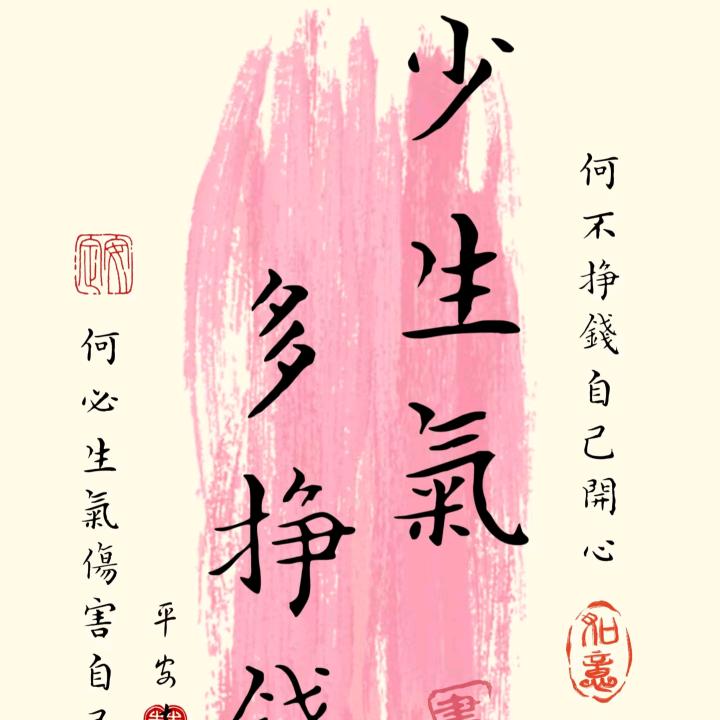 何不挣錢自己開心
如意
少生氣
多挣錢
平安
安定
何必生氣傷害自己